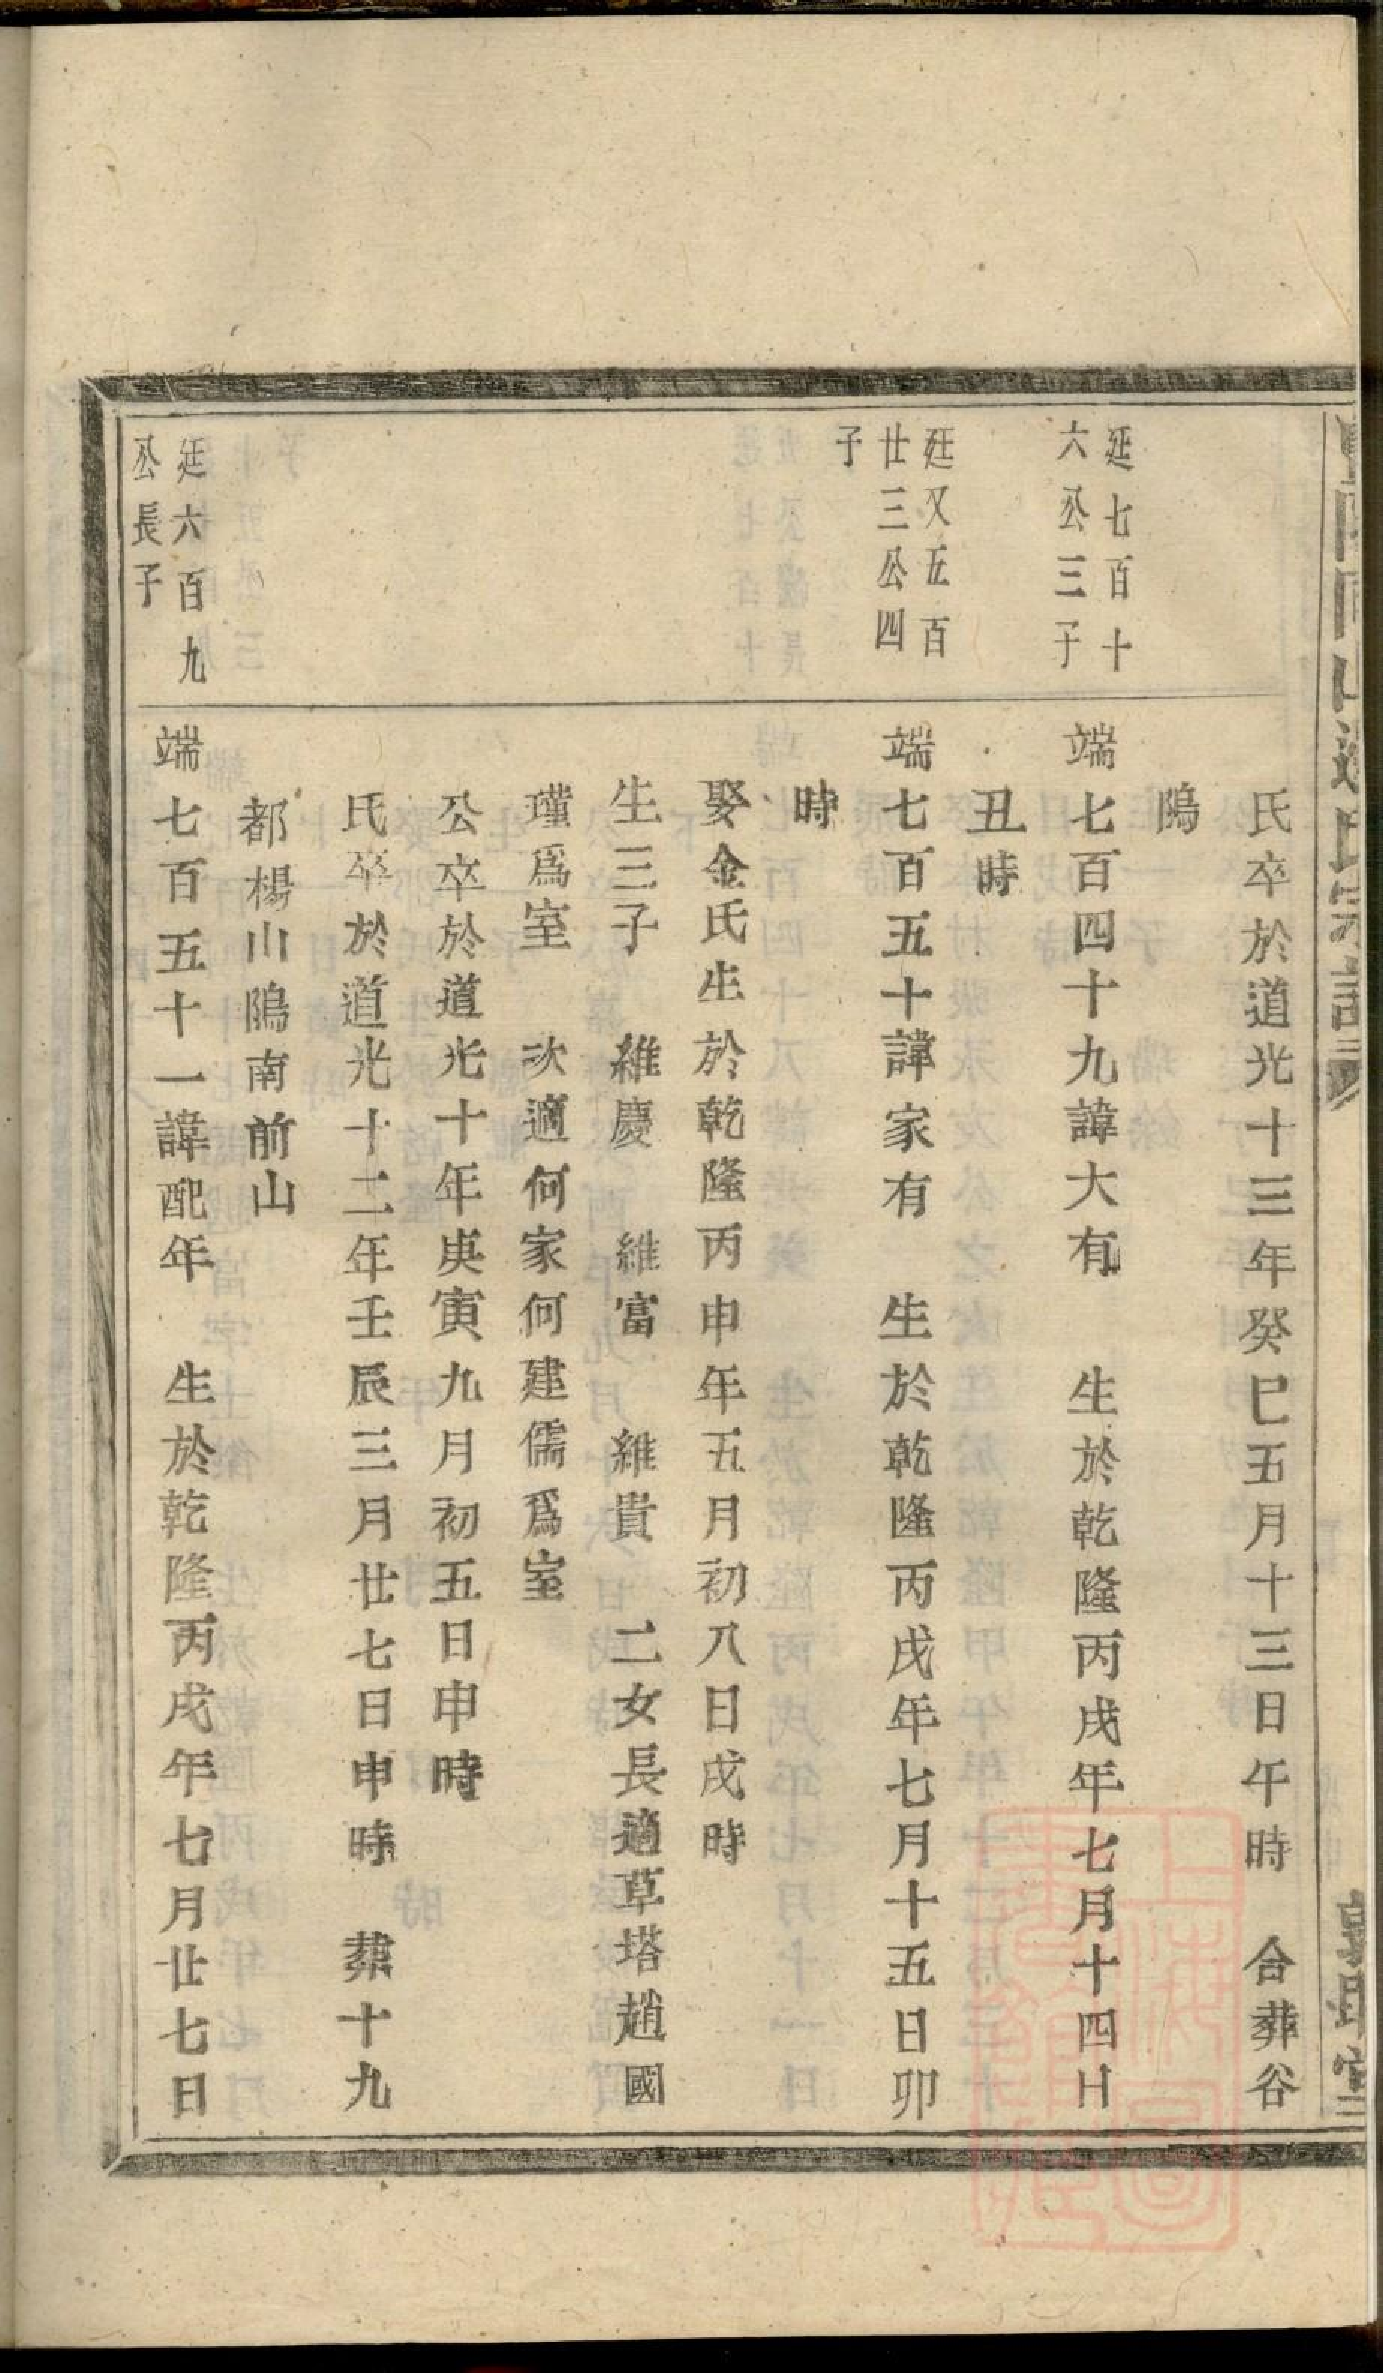 氏卒於道光十三年癸巳五月十三日午時　合葬谷
隝
廷七百十
六公三子
端七百四十九諱大有　生於乾隆丙戌年七月十四日
丑時
廷又五百
廿三公四
子
端七百五十諱家有　生於乾隆丙戌年七月十五日卯
時
娶金氏生於乾隆丙申年五月初八日戌時
生三子　維慶　維富　維貴　二女長適草塔趙國
瑾爲室　次適何家何建儒爲室
公卒於道光十年庚寅九月初五日申時
氏卒於道光十二年壬辰三月廿七日申時　葬十九
都楊山隝南前山
廷六百九
公長子
端七百五十一諱配年　生於乾隆丙戌年七月廿七日